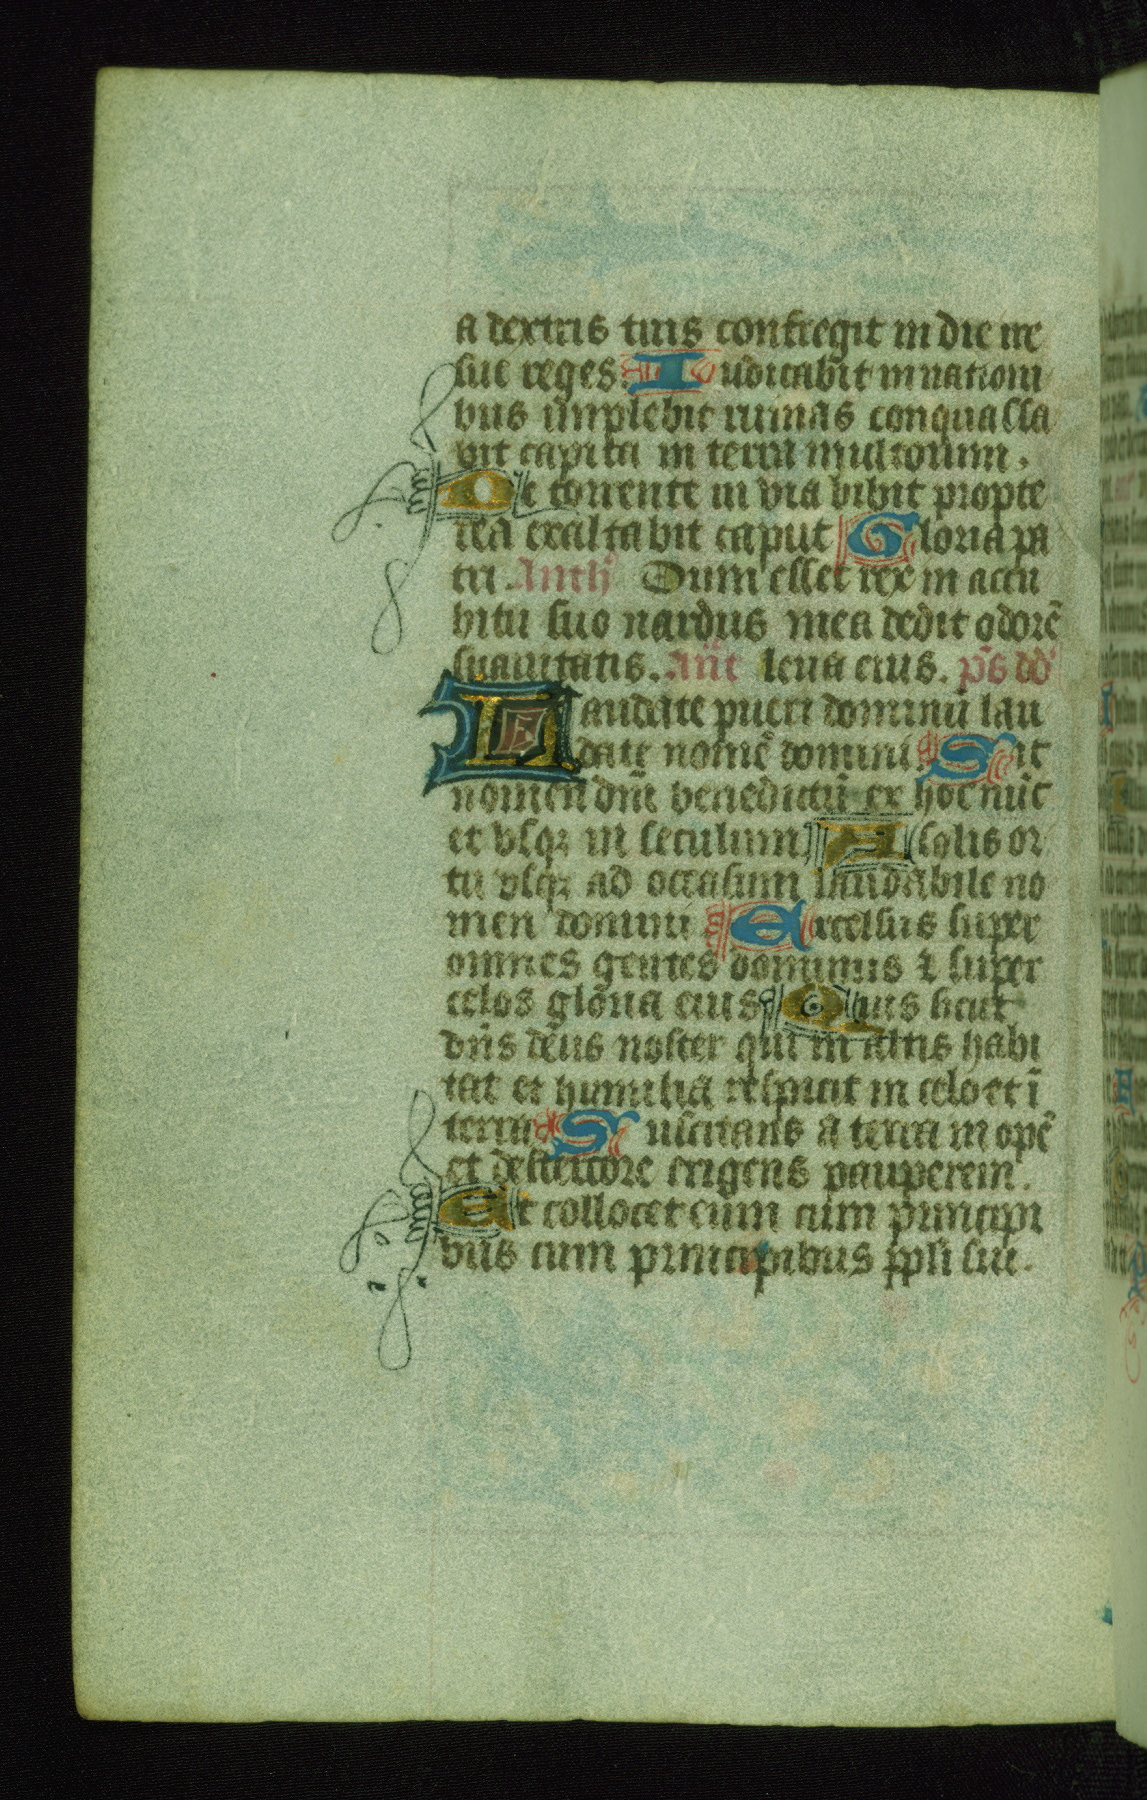 a dextris tuis confregit in die ire
sue reges. Iudicabit in nationi
bus implebit ruinas conquassa
bit capita in terra multorum.
De torrente in via bibit propte
rea exaltabit caput Gloria pa
tri. Anth Dum esset rex in accu
bitu suo nardus mea dedit odorē
suauitatis. Añt leua eius. ps dd
Laudate pueri dominū lau
date nomē domini Sit
nomen dñi benedictū ex hoc nūc
et vsqꝫ in seculum A solis or
tu vsqꝫ ad occasum laudabile no
men domini Excelsus super
omnes gentes dominus ⁊ super
celos gloria eius Quis sicut
dn̄s deus noster qui in altis habi
tat et humilia respicit in celo et ī
terra Suscitans a terra in opē
et de stercore erigens pauperem.
Et collocet eum cum principi
bus cum principibus ppli sui.